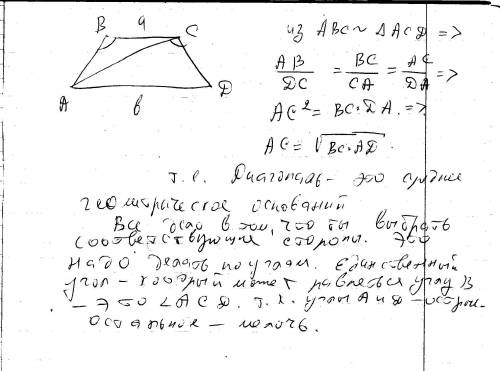 B a C
A b D
из ABC ~ ΔACD =>
AB/DC = BC/CA = AC/DA =>
AC² = BC·DA =>
AC = √BC·AD.
т.е. Диагональ - это среднее
геометрическое оснований
Все дело в том, что ты выбрать
соответствующие стороны. Это
надо делать по углам. Единственный
угол - который может равняться углу B
- это ∠ACD. т.к. углы A и D - острые.
Остальное - мелочь.